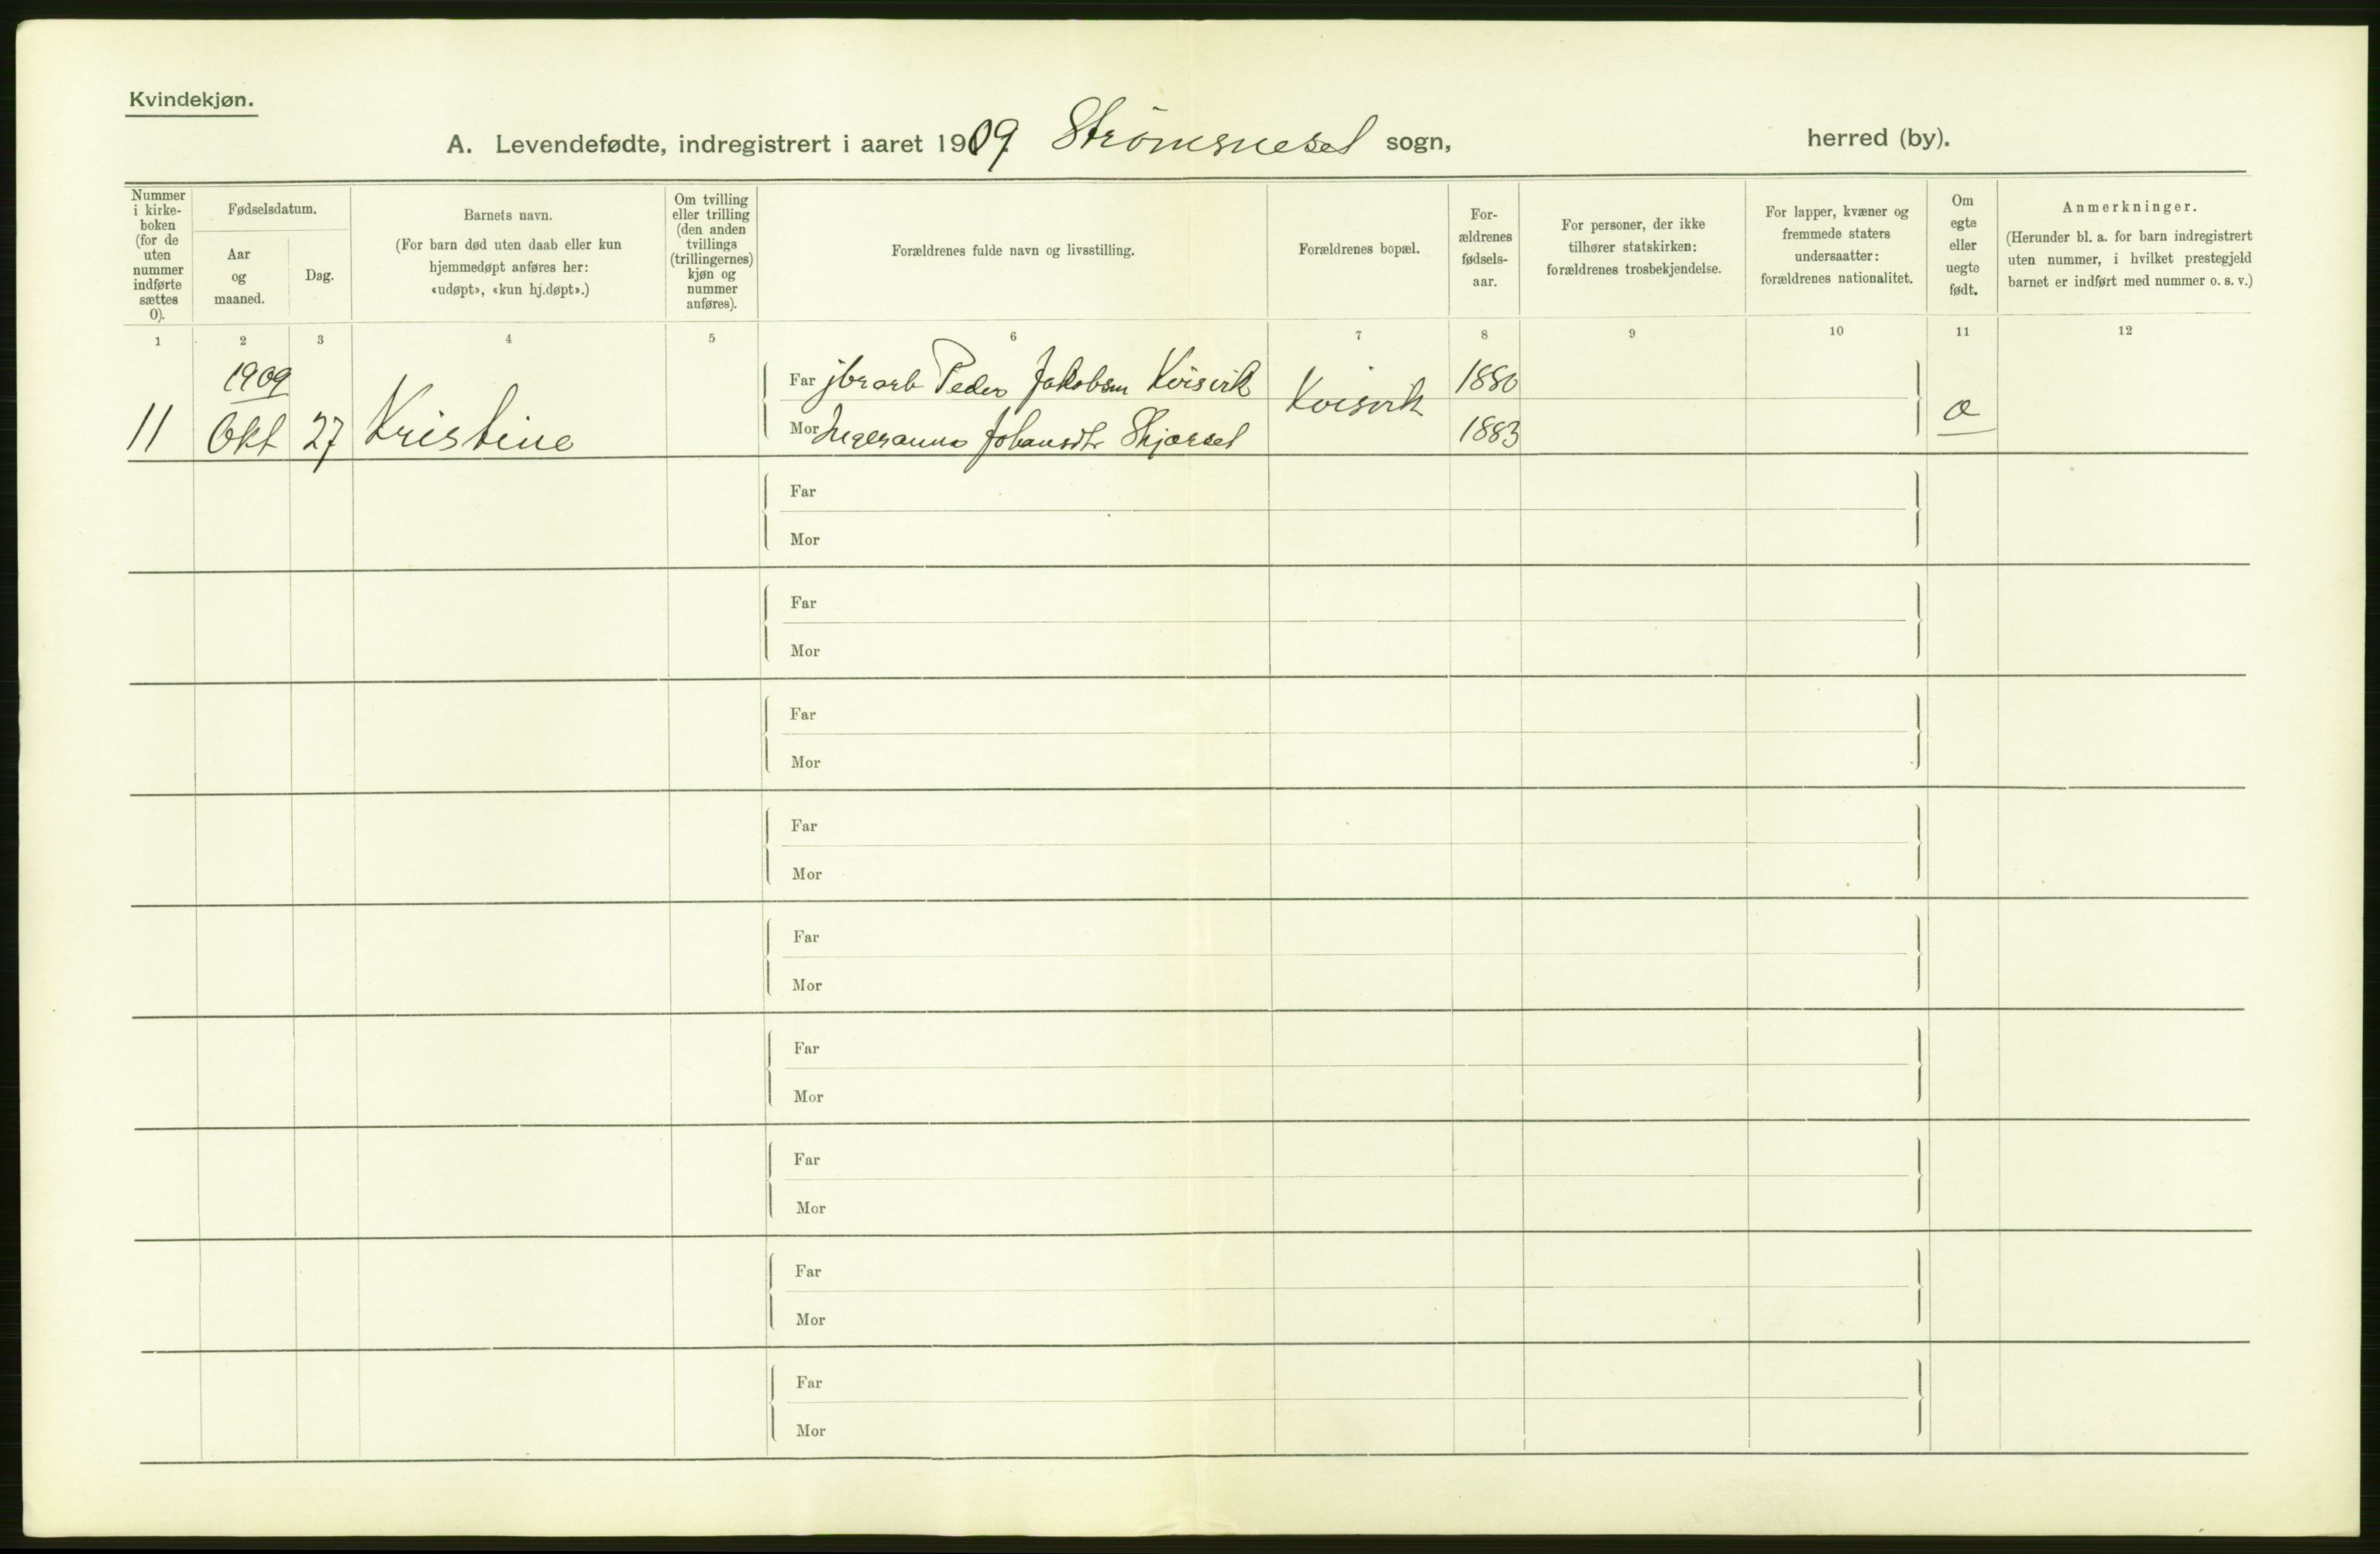 Kvindekjøn.
A. Levendefødte, indregistrert i aaret 1909. Strömsneset sogn, herred (by).
Nummer i kirke-boken (for de uten nummer indførte sættes 0).
Fødselsdatum.
Aar og maaned.
Dag.
Barnets navn.
(For barn død uten daab eller kun hjemmedøpt anføres her: «udøpt», «kun hj.døpt».)
Om tvilling eller trilling (den anden tvillings (trillingernes) kjøn og nummer anføres).
Forældrenes fulde navn og livsstilling.
Forældrenes bopæl.
For-ældrenes fødsels-aar.
For personer, der ikke tilhører statskirken: forældrenes trosbekjendelse.
For lapper, kvæner og fremmede staters undersaatter: forældrenes nationalitet.
Om egte eller uegte født.
Anmerkninger.
(Herunder bl. a. for barn indregistrert uten nummer, i hvilket prestegjeld barnet er indført med nummer o. s. v.)
1 2 3 4 5 6 7 8 9 10 11 12
1909
Far jbrarb Peder Jakobsen Kvisvik 1880
11 Okt 27 Kristine Kvisvik
Mor Johansdtr 1883
Far
Mor
Far
Mor
Far
Mor
Far
Mor
Far
Mor
Far
Mor
Far
Mor
Far
Mor
Far
Mor